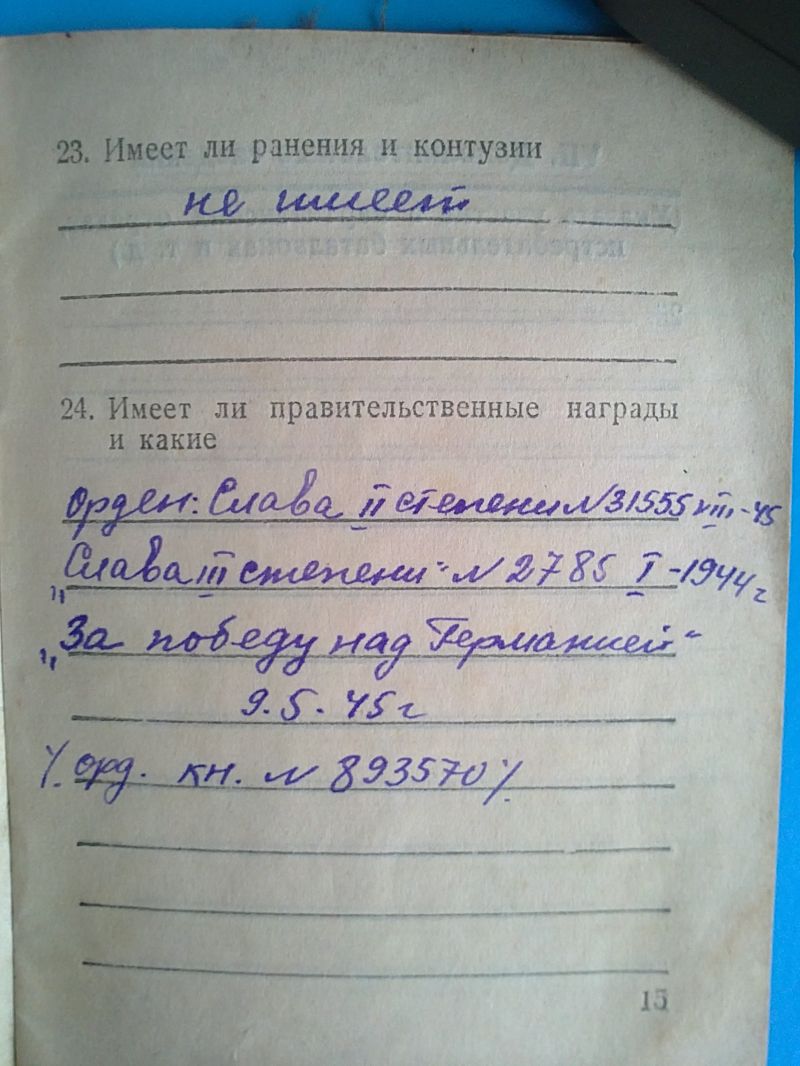 23. Имеет ли ранения и контузии
не имеет
24. Имеет ли правительственные награды
и какие
Орден: Слава II степени N 31555 VIII-45
„Слава III степени" N 2785 I-1944г
„За победу над Германией"
9.5.45г
/. орд. кн. N 893570 /.
15